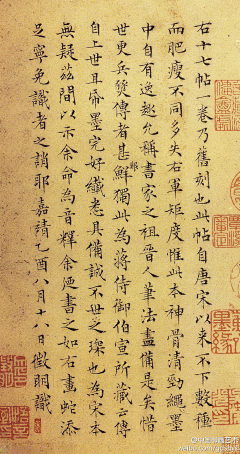 右十七帖一卷乃舊刻也此帖自唐宋以來不下數種
而肥瘦不同多失右軍矩度惟此本神骨清勁繩墨
中自有逸趣允稱書家之祖晉人筆法盡備是矣惜
世更兵燹傳者甚鮮獨此為蔣侍御伯宣所藏云傳
自上世耳帋墨完好纖悉具備誠不世之璨也為宋本
無疑茲間以示余命為音釋余漫書之如右畫蛇添
足寧免識者之誚耶嘉靖乙酉八月十八日徵明識